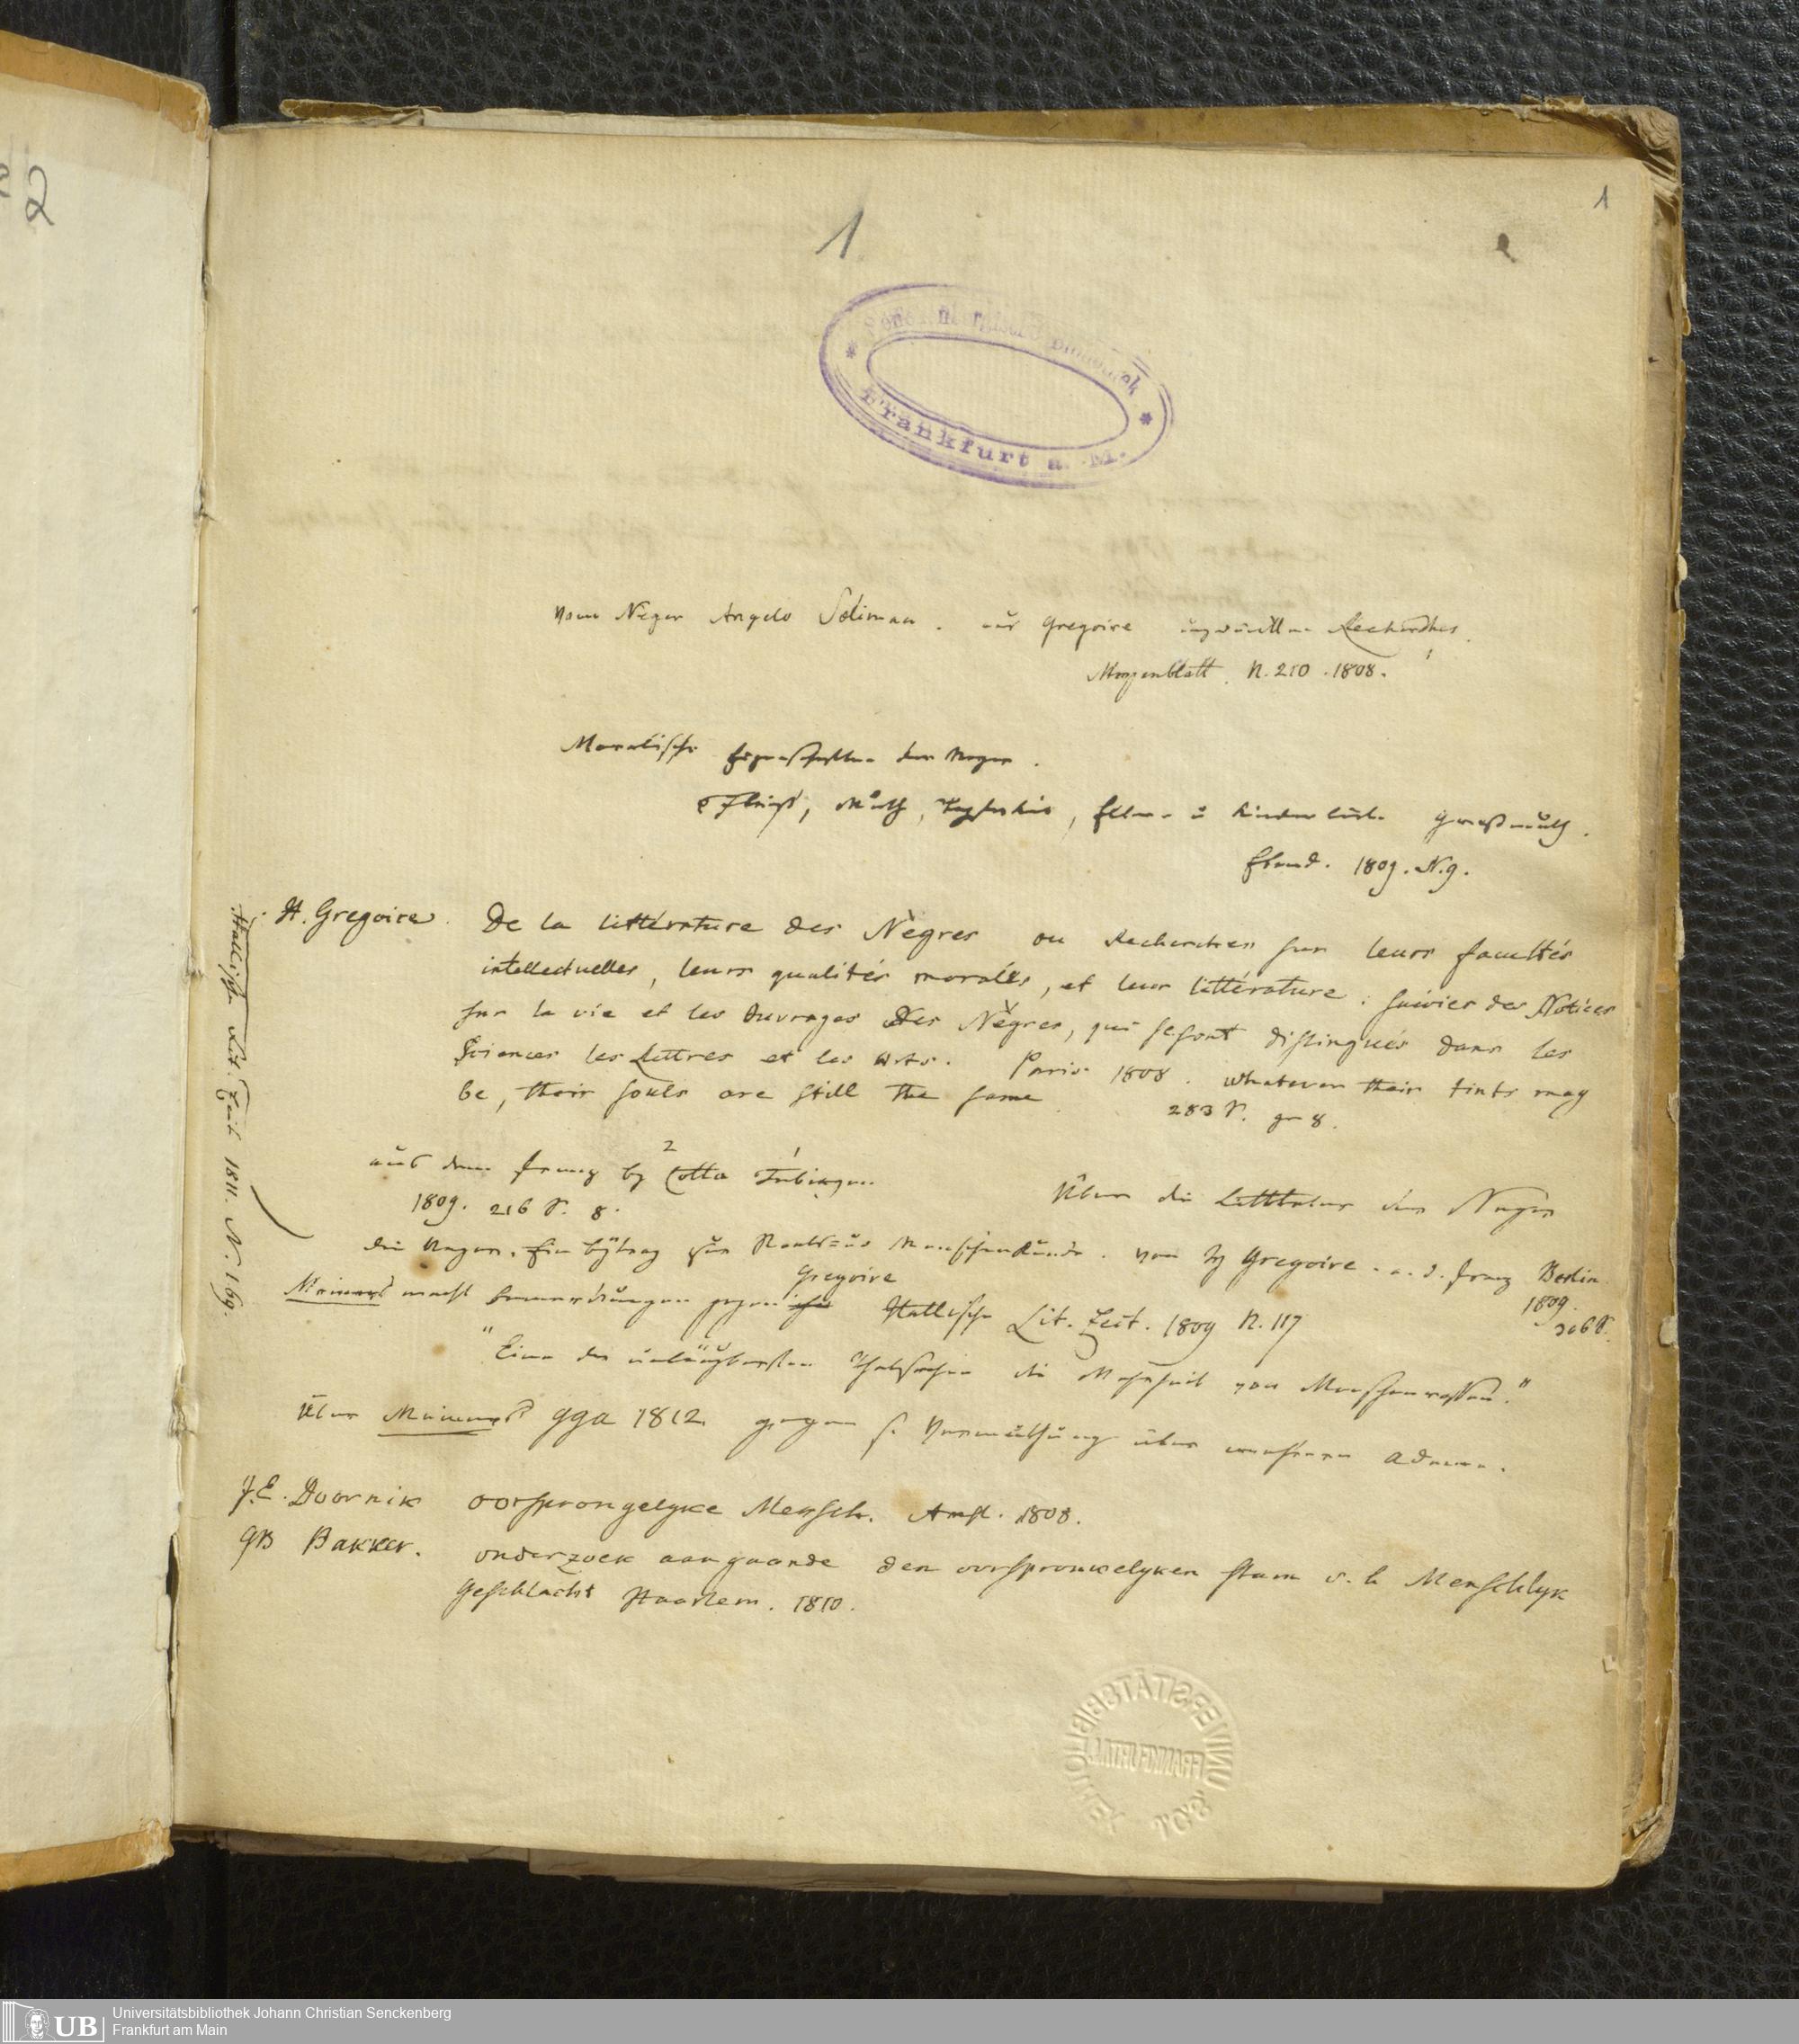 1
1
Senckenbergische Bibliothek
Frankfurt a. M.
vom Neger Angelo Soliman. aus Gregoire Recherches.
Morgenblatt. N. 210. 1808.
Moralische Eigenschaften der Neger.
Fleiß, Muth, Tapferkeit, Eltern u Kinderliebe Großmuth.
Ebend. 1809. N. 9.
H. Gregoire. De la littérature des Nègres ou Recherches sur leurs facultés
intellectuelles, leurs qualités morales, et leur littérature; suivies des Notices
sur la vie et les Ouvrages des Nègres, qui se sont distingués dans les
Sciences les Lettres et les Arts. Paris 1808. whatever their tints may
be, their souls are still the same 283 S. gr 8.
aus dem Franz by 2 Cotta 1 Tübingen
1809. 216 S. 8.
Über die Litteratur der Neger
die Neger. Ein Bÿtrag zur Staats= und Menschenkunde. von H Gregoire. a. d. Franz Berlin
1809.
306 S.
Gregoire
Meiners macht Bemerkungen gegen Hallische Lit. Zeit. 1809 N. 117
"Eine der unläugbarsten Thatsachen die Mehrheit von Menschenrassen."
Über Meiners gga 1812. gegen s. Vermuthung über mehrere Adame.
J.E. Doornik oorsprongelyke Mensch. Amst. 1808.
GB Bakker. onderzoek aangaande den oorspronkelyken stam v. h Menschlyk
Geschlacht Haarlem. 1810.
Hallische Lit. Zeit 1811. N. 169.
UNIVERSITÄTSBIBLIOTHEK
FRANKFURT A.M.
UB Universitätsbibliothek Johann Christian Senckenberg
Frankfurt am Main